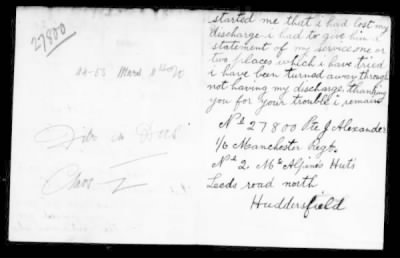 27800
started me that i had lost my
discharge i had to give him a
statement of my service one or
two places which i have tried
i have been turned away through
not having my discharge. thanking
you for your trouble i remains
Nº 27800 Pte J Alexander
1/6 Manchester Regt.
Nº 2. Mc Alpines Huts
Leeds road north
Huddersfield